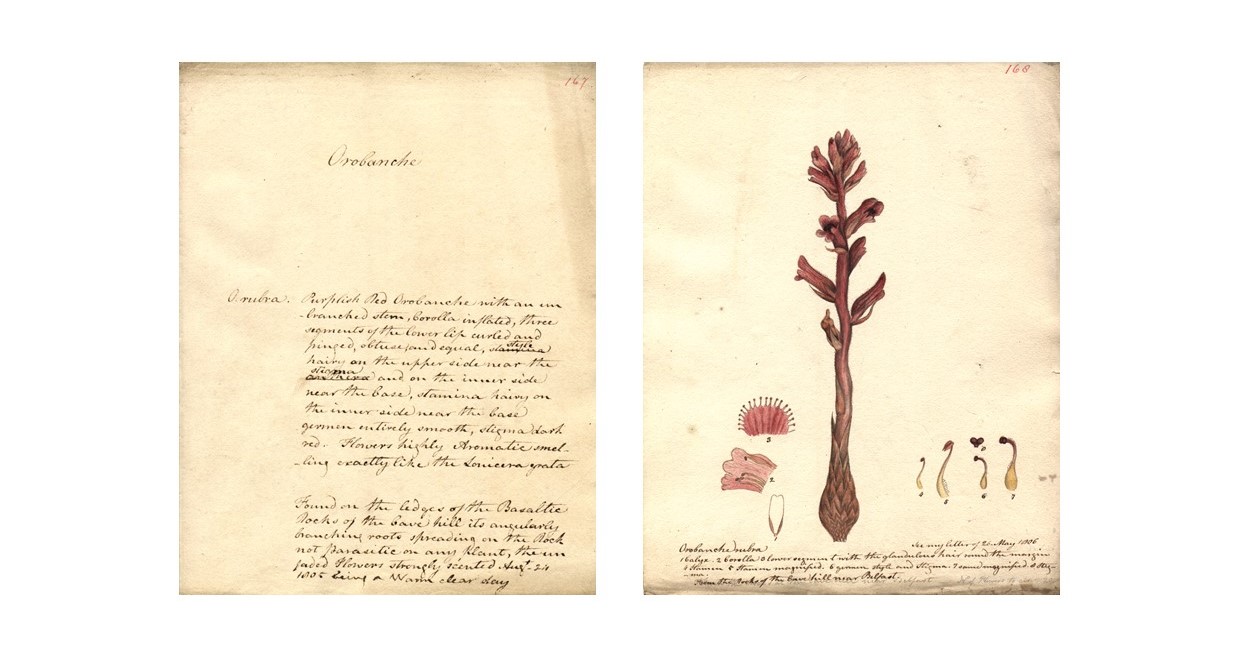 167
Orobanche
O. rubra. Purplish Red Orobanche with an un
-branched stem, Corolla inflated, three
segments of the lower lip curled and
pinged, obtuse and equal, stamina style
hairy on the upper side near the
stigma and on the inner side
near the base, stamina hairy on
the inner side near the base
germen entirely smooth, stigma dark
red. Flowers highly Aromatic smel-
-ling exactly like the Lonicera grata
Found on the ledges of the Basaltic
Rocks of the Cave hill its angularly
branching roots spreading on the Rock
not parasitic on any Plant, the un
faded Flowers strongly scented Augt. 24
1805 being a Warm clear day
168
3
2
1
4
5
8
6
7
See my letter of 21. May 1806
Orobanche rubra
1 Calyx. 2 Corolla 3 lower segment with the glandulous hair round the margin
4 Stamen 5 Stamen magnified. 6 germen style and Stigma. 7 same magnified 8 Stig-
-ma.
From the Rocks of the Cave hill near Belfast.